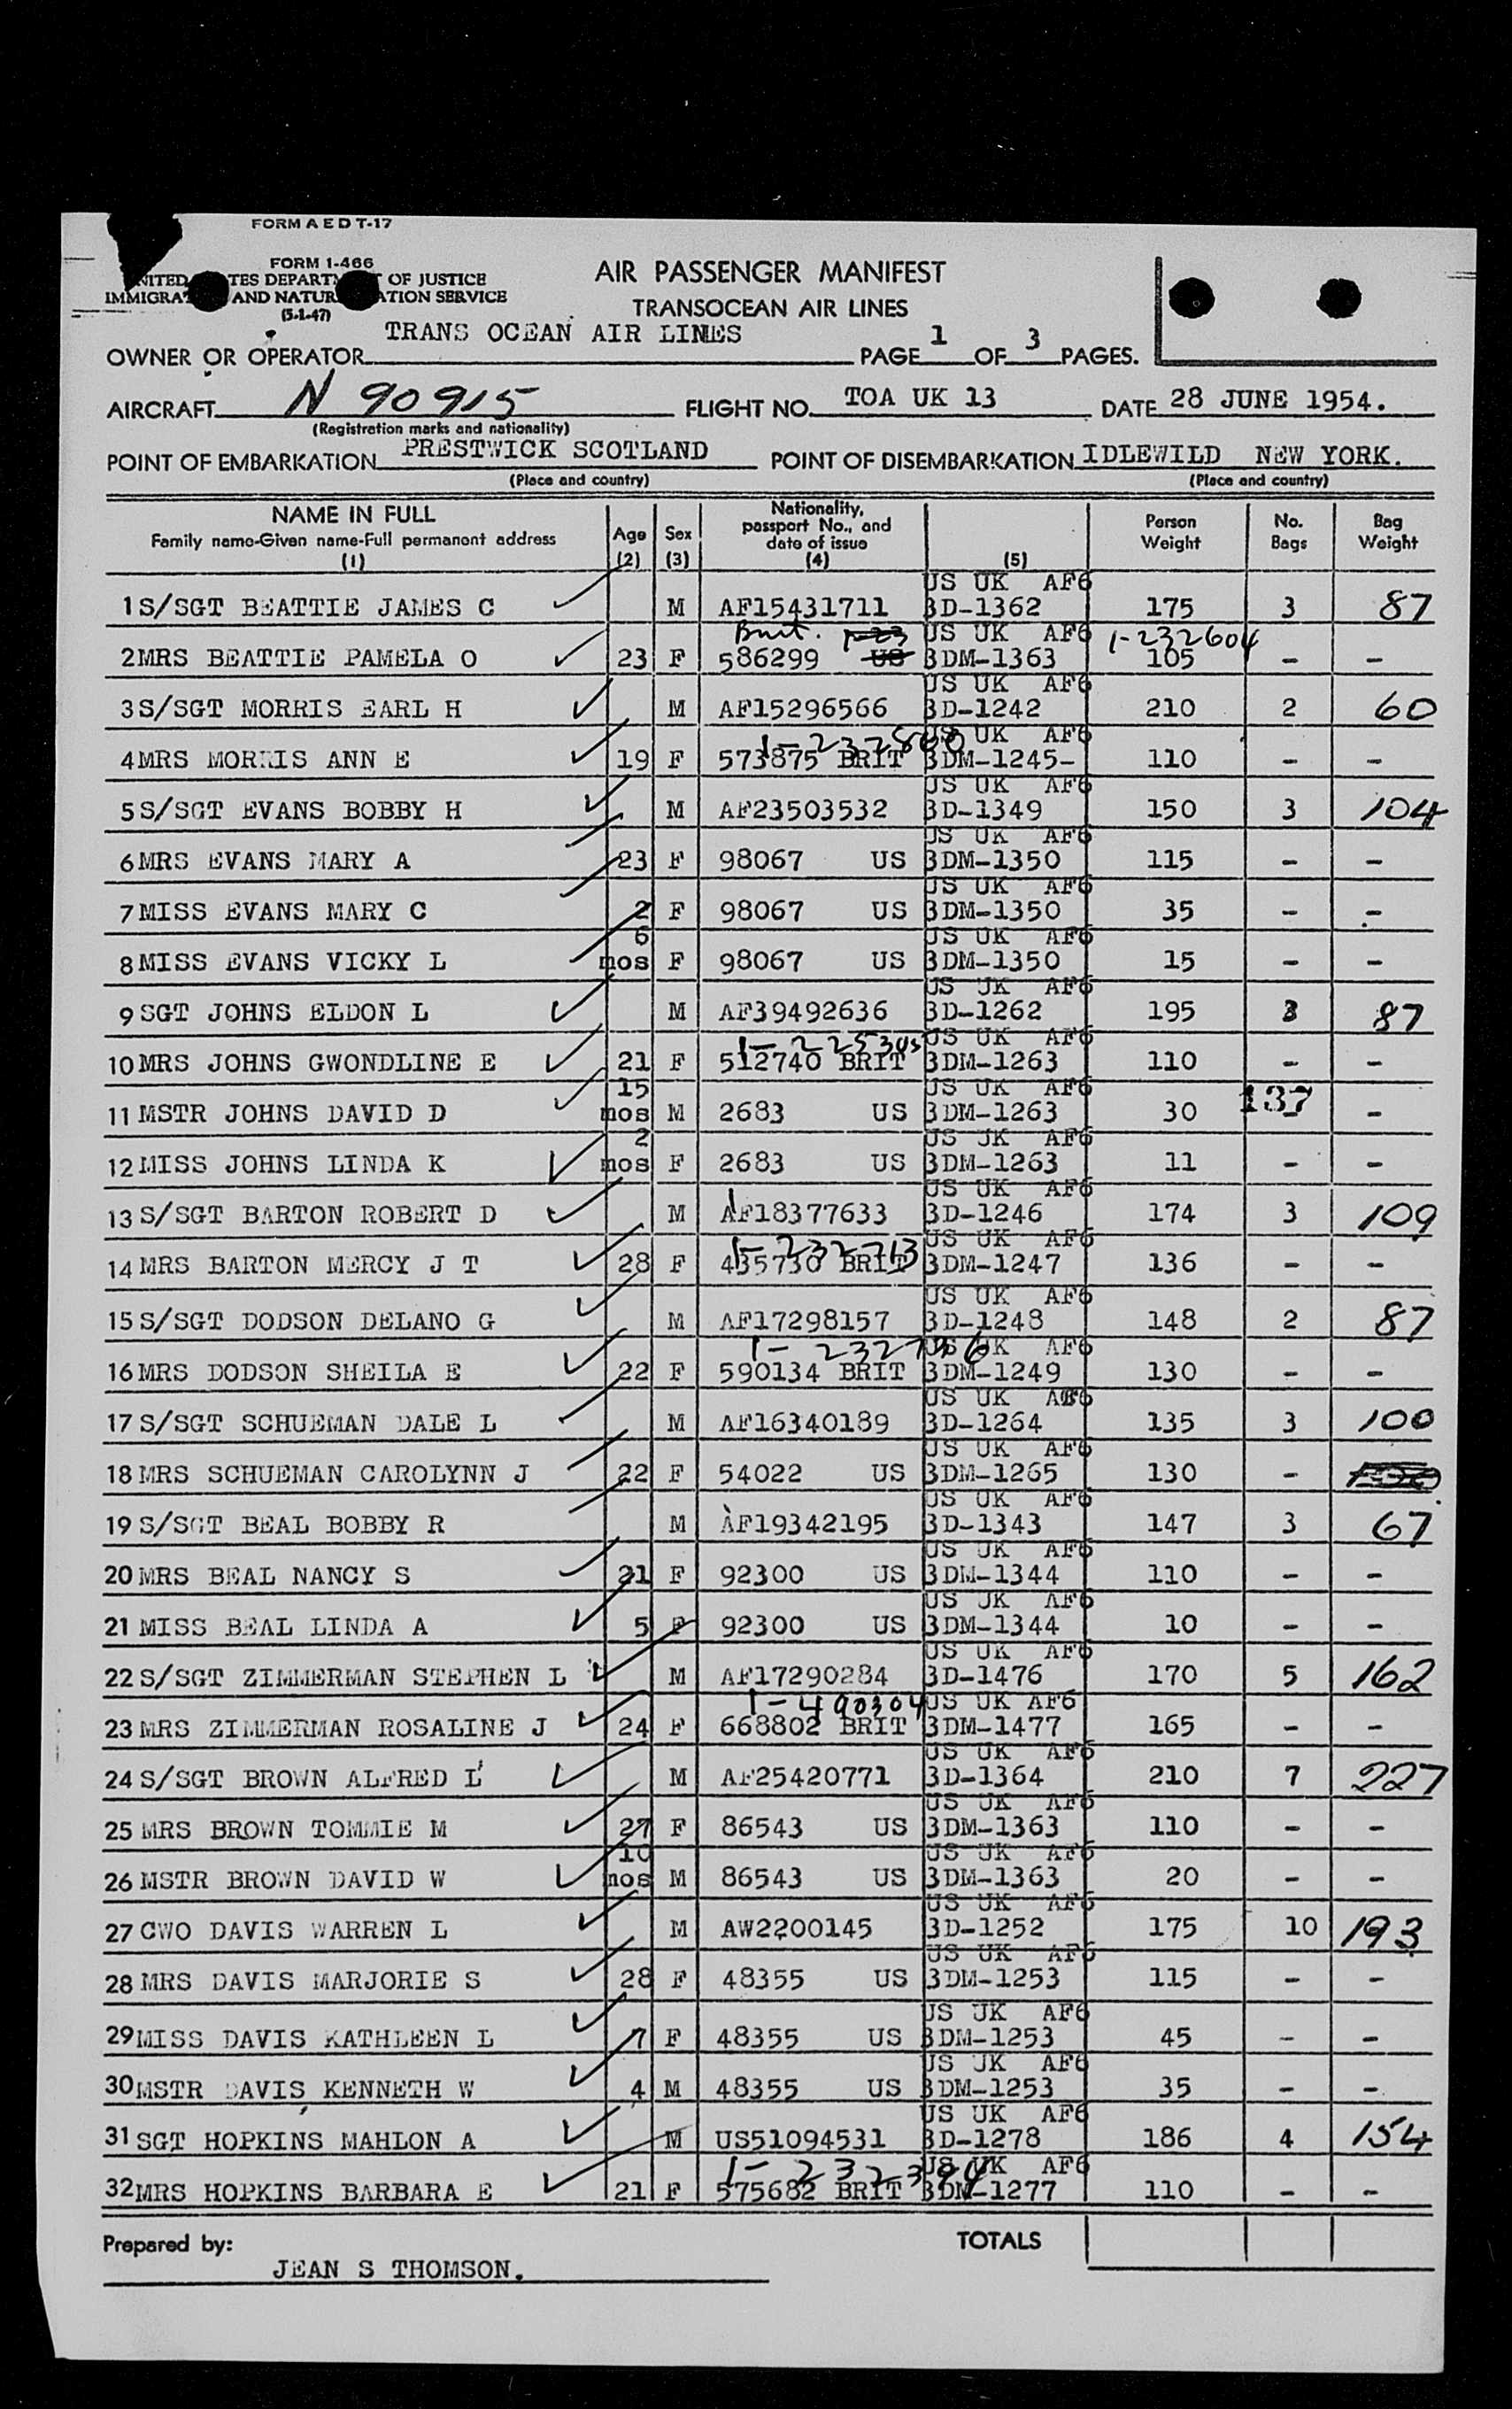 FORM A E D T-17
FORM 1-466
OF JUSTICE
AND
SERVICE
(5-1-47)
AIR PASSENGER MANIFEST
TRANSOCEAN AIR LINES
OWNER OR OPERATOR TRANS OCEAN AIR LINES PAGE 1 OF 3 PAGES.
AIRCRAFT N 90915 FLIGHT NO. TOA UK 13 DATE 28 JUNE 1954.
(Registration marks and nationality)
POINT OF EMBARKATION PRESTWICK SCOTLAND POINT OF DISEMBARKATION IDLEWILD NEW YORK.
(Place and country) (Place and country)
NAME IN FULL Family name-Given name-Full permanent address (1) Age (2) Sex (3) Nationality, passport No., and date of issue (4) (5) Person Weight No. Bags Bag Weight
US UK AF6
1 S/SGT BEATTIE JAMES C M AF15431711 3D-1362 175 3 87
Brit. 1-23 US UK AF6 1-232604
2 MRS BEATTIE PAMELA O 23 F 586299 US 3DM-1363 105 - -
US UK AF6
3 S/SGT MORRIS EARL H M AF15296566 3D-1242 210 2 60
1-232800 US UK AF6
4 MRS MORRIS ANN E 19 F 573875 BRIT 3DM-1245- 110 - -
US UK AF6
5 S/SGT EVANS BOBBY H M AF23503532 3D-1349 150 3 104
US UK AF6
6 MRS EVANS MARY A 23 F 98067 US 3DM-1350 115 - -
US UK AF6
7 MISS EVANS MARY C 2 F 98067 US 3DM-1350 35 - -
6 US UK AF6
8 MISS EVANS VICKY L mos F 98067 US 3DM-1350 15 - -
US UK AF6
9 SGT JOHNS ELDON L M AF39492636 3D-1262 195 3 87
1-225305 US UK AF6
10 MRS JOHNS GWONDLINE E 21 F 512740 BRIT 3DM-1263 110 - -
15 US UK AF6 137
11 MSTR JOHNS DAVID D mos M 2683 US 3DM-1263 30 - -
2 US UK AF6
12 MISS JOHNS LINDA K mos F 2683 US 3DM-1263 11 - -
US UK AF6
13 S/SGT BARTON ROBERT D M AF18377633 3D-1246 174 3 109
1-232713 US UK AF6
14 MRS BARTON MERCY J T 28 F 435730 BRIT 3DM-1247 136 - -
US UK AF6
15 S/SGT DODSON DELANO G M AF17298157 3D-1248 148 2 87
1-232736 US UK AF6
16 MRS DODSON SHEILA E 22 F 590134 BRIT 3DM-1249 130 - -
US UK AF6
17 S/SGT SCHUEMAN DALE L M AF16340189 3D-1264 135 3 100
US UK AF6
18 MRS SCHUEMAN CAROLYNN J 22 F 54022 US 3DM-1265 130 -
US UK AF6
19 S/SGT BEAL BOBBY R M AF19342195 3D-1343 147 3 67
US UK AF6
20 MRS BEAL NANCY S 21 F 92300 US 3DM-1344 110 - -
US UK AF6
21 MISS BEAL LINDA A 5 F 92300 US 3DM-1344 10 - -
US UK AF6
22 S/SGT ZIMMERMAN STEPHEN L M AF17290284 3D-1476 170 5 162
1-490304 US UK AF6
23 MRS ZIMMERMAN ROSALINE J 24 F 668802 BRIT 3DM-1477 165 - -
US UK AF6
24 S/SGT BROWN ALFRED L M AF25420771 3D-1364 210 7 227
US UK AF6
25 MRS BROWN TOMMIE M 27 F 86543 US 3DM-1363 110 - -
10 US UK AF6
26 MSTR BROWN DAVID W mos M 86543 US 3DM-1363 20 - -
US UK AF6
27 CWO DAVIS WARREN L M AW2200145 3D-1252 175 10 193
US UK AF6
28 MRS DAVIS MARJORIE S 28 F 48355 US 3DM-1253 115 - -
US UK AF6
29 MISS DAVIS KATHLEEN L 7 F 48355 US 3DM-1253 45 - -
US UK AF6
30 MSTR DAVIS KENNETH W 4 M 48355 US 3DM-1253 35 - -
US UK AF6
31 SGT HOPKINS MAHLON A M US51094531 3D-1278 186 4 154
1-232394 US UK AF6
32 MRS HOPKINS BARBARA E 21 F 575682 BRIT 3DM-1277 110 - -
Prepared by: TOTALS
JEAN S THOMSON.